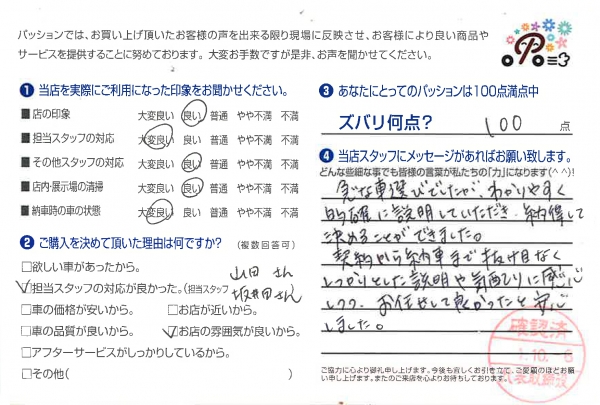 パッションでは、お買い上げ頂いたお客様の声を出来る限り現場に反映させ、お客様により良い商品や
サービスを提供することに努めております。大変お手数ですが是非、お声を聞かせてください。
❶ 当店を実際にご利用になった印象をお聞かせください。
■店の印象 大変良い 良い 普通 やや不満 不満
■担当スタッフの対応 大変良い 良い 普通 やや不満 不満
■その他スタッフの対応 大変良い 良い 普通 やや不満 不満
■店内・展示場の清掃 大変良い 良い 普通 やや不満 不満
■納車時の車の状態 大変良い 良い 普通 やや不満 不満
❷ ご購入を決めて頂いた理由は何ですか? (複数回答可)
□欲しい車があったから。
山田さん
□担当スタッフの対応が良かった。(担当スタッフ 坂井田さん
□車の価格が安いから。 □お店が近いから。
□車の品質が良いから。 □お店の雰囲気が良いから。
□アフターサービスがしっかりしているから。
□その他( )
❸ あなたにとってのパッションは100点満点中
ズバリ何点? 100 点
❹ 当店スタッフにメッセージがあればお願い致します。
どんな些細な事でも皆様の言葉が私たちの「力」になります(^^)!
急な車選びでしたが、わかりやすく
的確に説明していただき、納得して
決めることができました。
契約から納車まで抜け目なく
しっかりとした説明や気配りに感心
しつつ、お任せして良かったと安心
しました。
確認済
10.-6
ご協力に心より御礼申し上げます。今後も宜しくお引き立て、ご愛顧のほどお願い申し上げます。またのご来店を心よりお待ちしております。